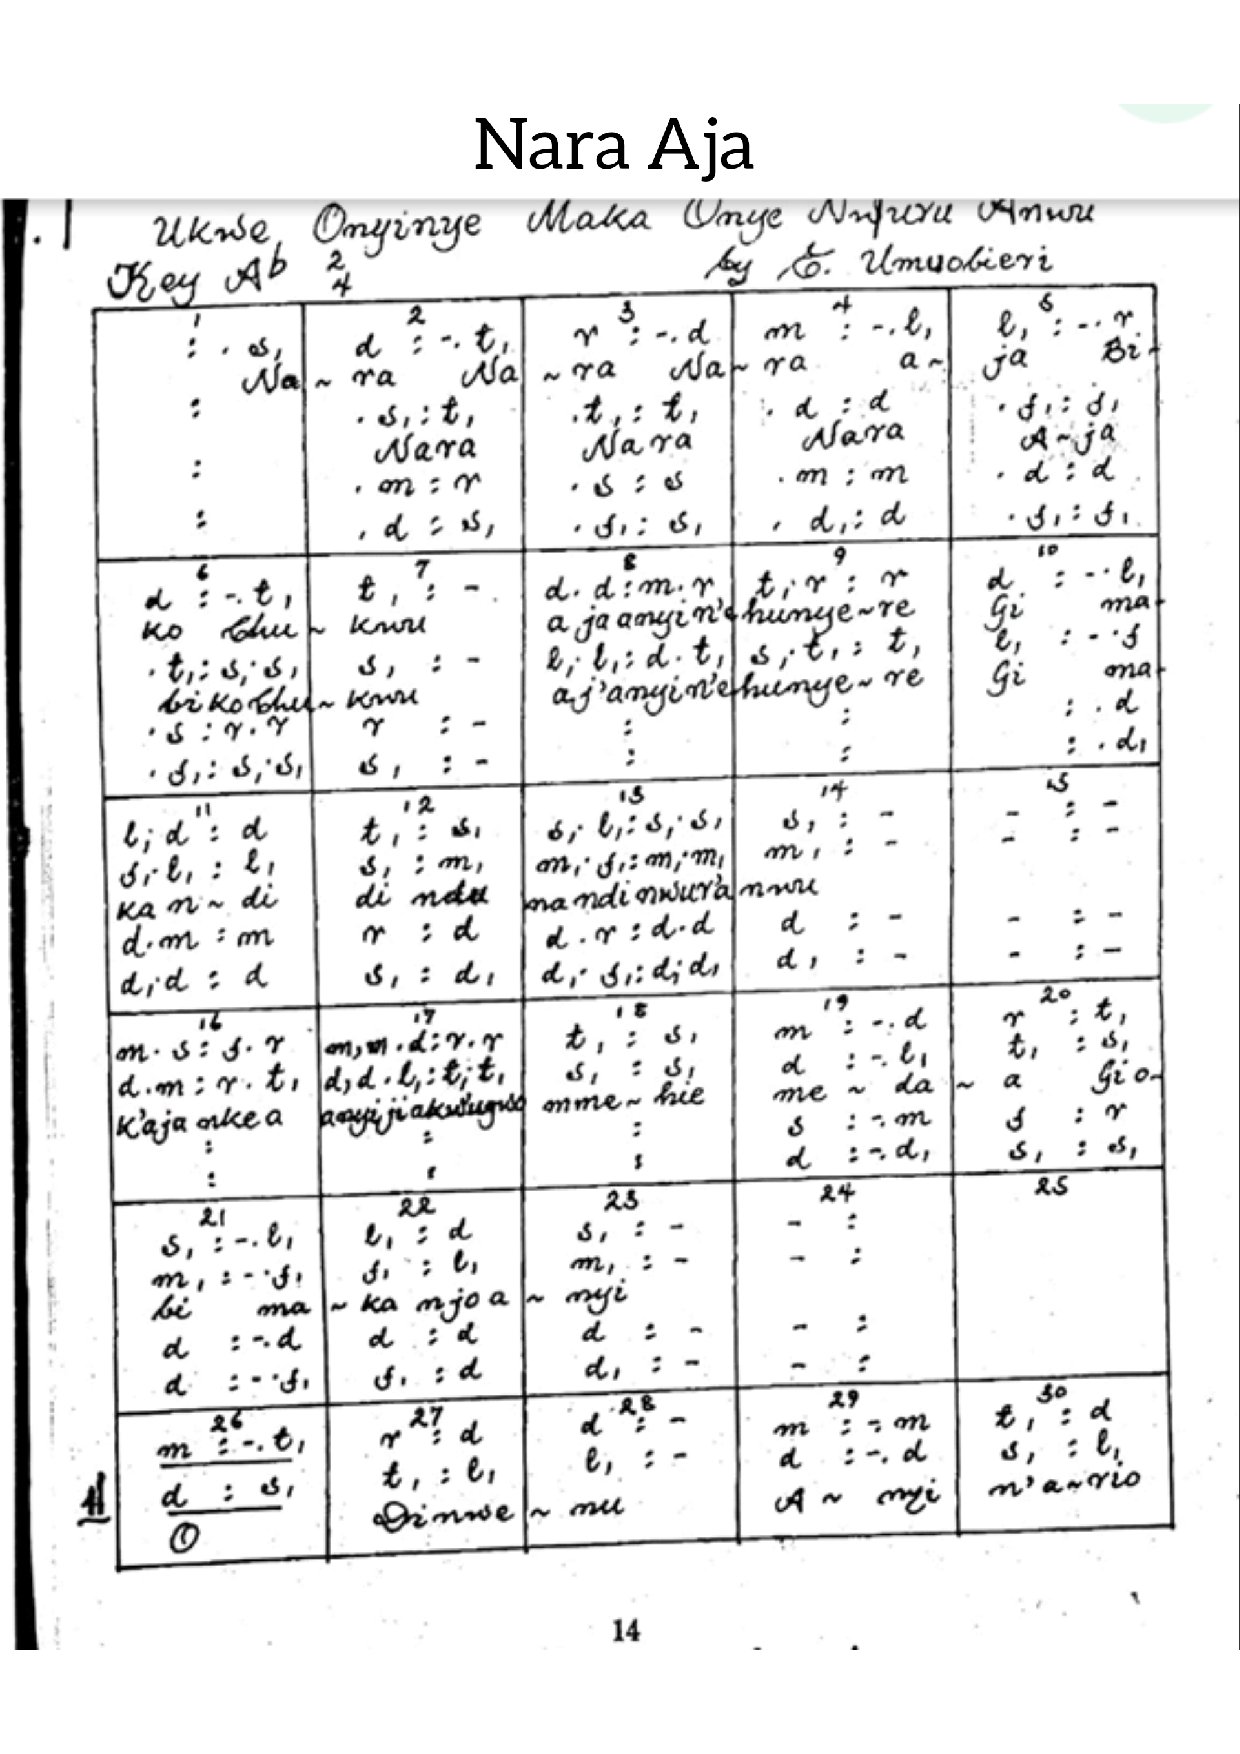 Nara Aja
. 1 Ukwe Onyinye Maka Onye Nwuru Anwu
Key Ab 2/4 by E. Umuobieri
1 2 3 4 5
: . s, d : -. t, r : -. d m : -. l, l, : -. r
Na ~ ra Na ~ ra Na ~ ra a ~ ja Bi-
: . s, : t, . t, : t, . d : d . f, : f,
Nara Nara Nara A ~ ja
: . m : r . s : s . m : m . d : d
: . d : s, . f, : s, . d, : d . f, : f,
6 7 8 9 10
d : -. t, t, : - d . d : m . r t, . r : r d : -. l,
ko Chu ~ kwu a ja anyi n'e hunye ~ re Gi ma-
. t, : s, . s, s, : - l, . l, : d . t, s, . t, : t, l, : -. f
biko Chu ~ kwu a j'anyi n'e hunye ~ re Gi ma-
. s : r . r r : - : : : . d
. f, : s, . s, s, : - : : : . d,
11 12 13 14 15
l, . d : d t, : s, s, . l, : s, . s, s, : - - : -
f, . l, : l, s, : m, m, . f, : m, . m, m, : - - : -
ka n ~ di di ndu na ndi nwura nwu
d . m : m r : d d . r : d . d d : - - : -
d, . d : d s, : d, d, . f, : d, . d, d, : - - : -
16 17 18 19 20
m . s : f . r m, m . d : r . r t, : s, m : -. d r : t,
d . m : r . t, d, d . l, : t, . t, s, : s, d : -. l, t, : s,
K'aja nkea anyi ji akwugwo mme ~ hie me ~ da ~ a Gi o-
: : : s : -. m f : r
: : : d : -. d, s, : s,
21 22 23 24 25
s, : -. l, l, : d s, : - - :
m, : -. f, f, : l, m, : - - :
bi ma ~ ka njo a ~ nyi
d : -. d d : d d : - - :
d : -. f, f, : d d, : - - :
26 27 28 29 30
m : -. t, r : d d : - m : -. m t, : d
d : s, t, : l, l, : - d : -. d s, : l,
① Dinwe ~ nu A ~ nyi n'a ~ rio
14